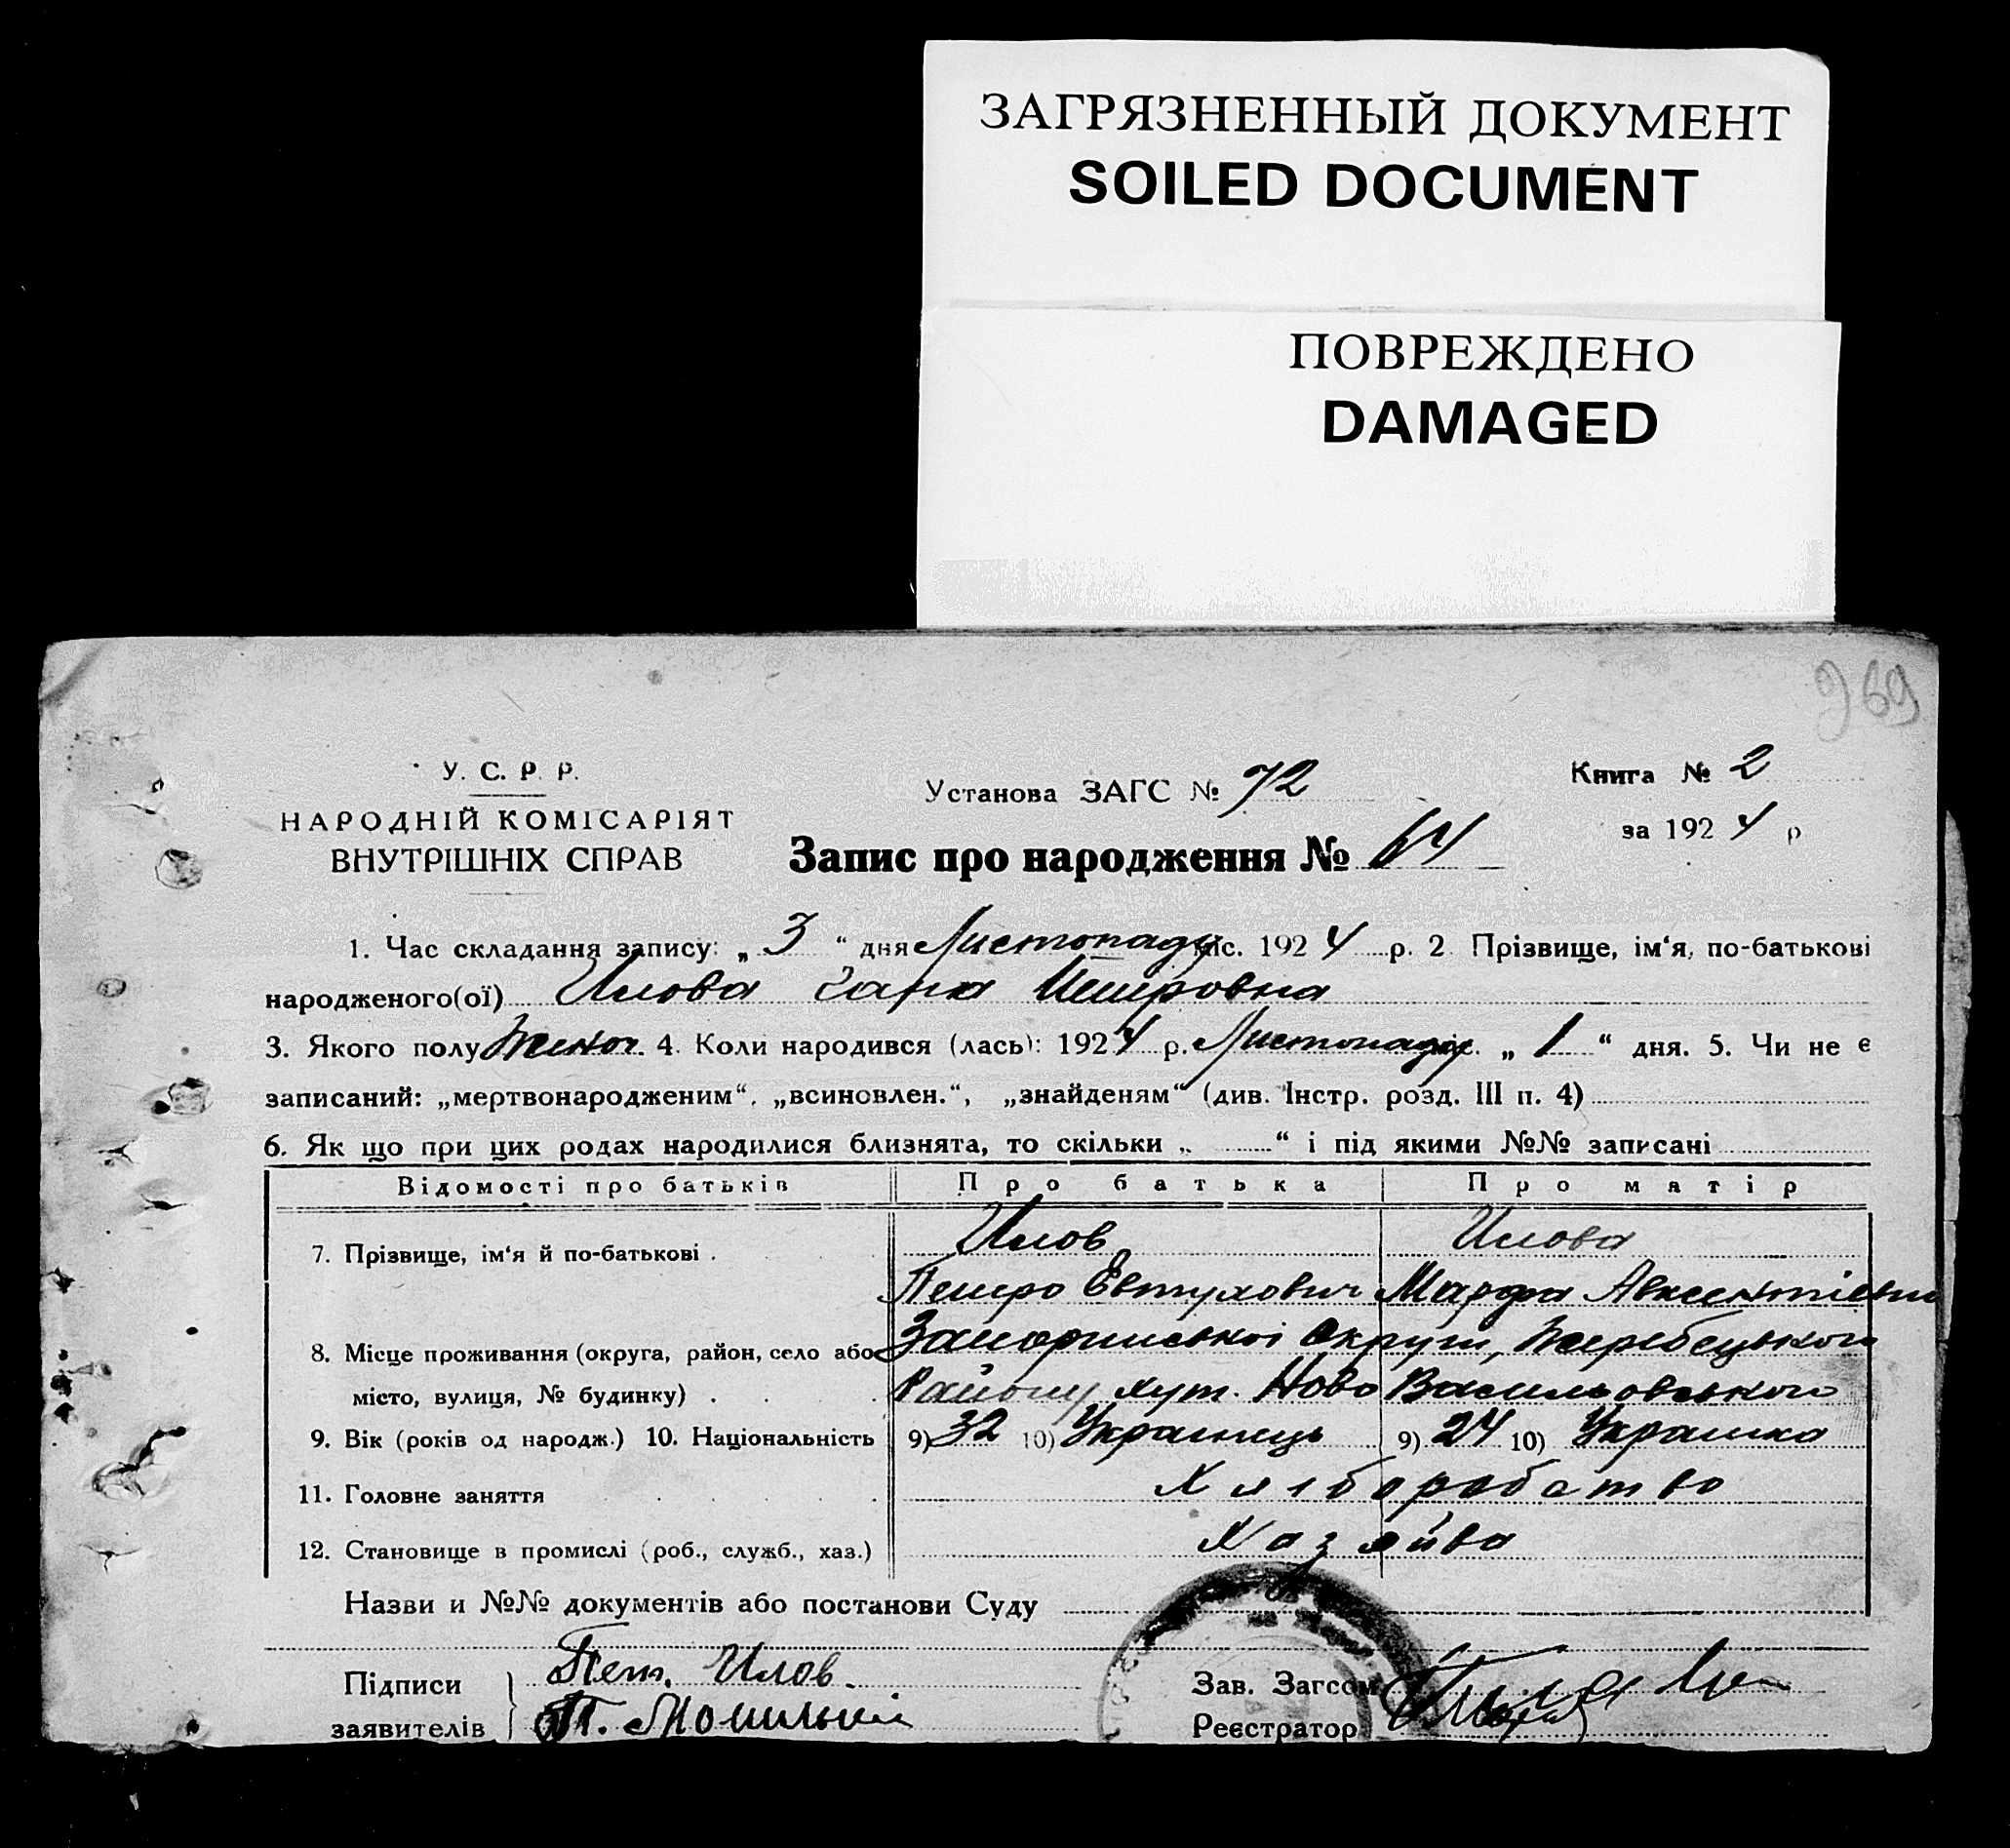 ЗАГРЯЗНЕННЫЙ ДОКУМЕНТ
SOILED DOCUMENT
ПОВРЕЖДЕНО
DAMAGED
969
У. С. Р. Р.
НАРОДНІЙ КОМІСАРІЯТ
ВНУТРІШНІХ СПРАВ
Установа ЗАГС № 72
Книга № 2
за 1924 р
Запис про народження № 64
1. Час складання запису: „ 3 “ дня Листопаду міс. 1924 р. 2. Прізвище, ім‘я, по-батькові
народженого(ої) Илова Петровна
3. Якого полу Женоч. 4. Коли народився (лась): 1924 р. Листопаду міс. „ 1 “ дня. 5. Чи не є
записаний: „мертвонародженим“, „всиновлен.“, „знайденям“ (див. Інстр. розд. III п. 4)
6. Як що при цих родах народилися близнята, то скільки „ “ і під якими №№ записані
Відомості про батьків Про батька Про матір
7. Прізвище, ім‘я й по-батькові . Илов Илова
Петро Евтухович Марфа Авксентіевна
8. Місце проживання (округа, район, село або Запоріжської Округи, Жеребецького
місто, вулиця, № будинку) . Району хут. Ново Васильовського
9. Вік (років од народж.) 10. Національність 9) 32 10) Украінець 9) 24 10) Украінка
11. Головне заняття Хліборобство
12. Становище в промислі (роб., служб., хаз.) Хазяйва
Назви и №№ документів або постанови Суду
Підписи Пет. Илов.
заявителів П.
Зав. Загсом
Реєстратор